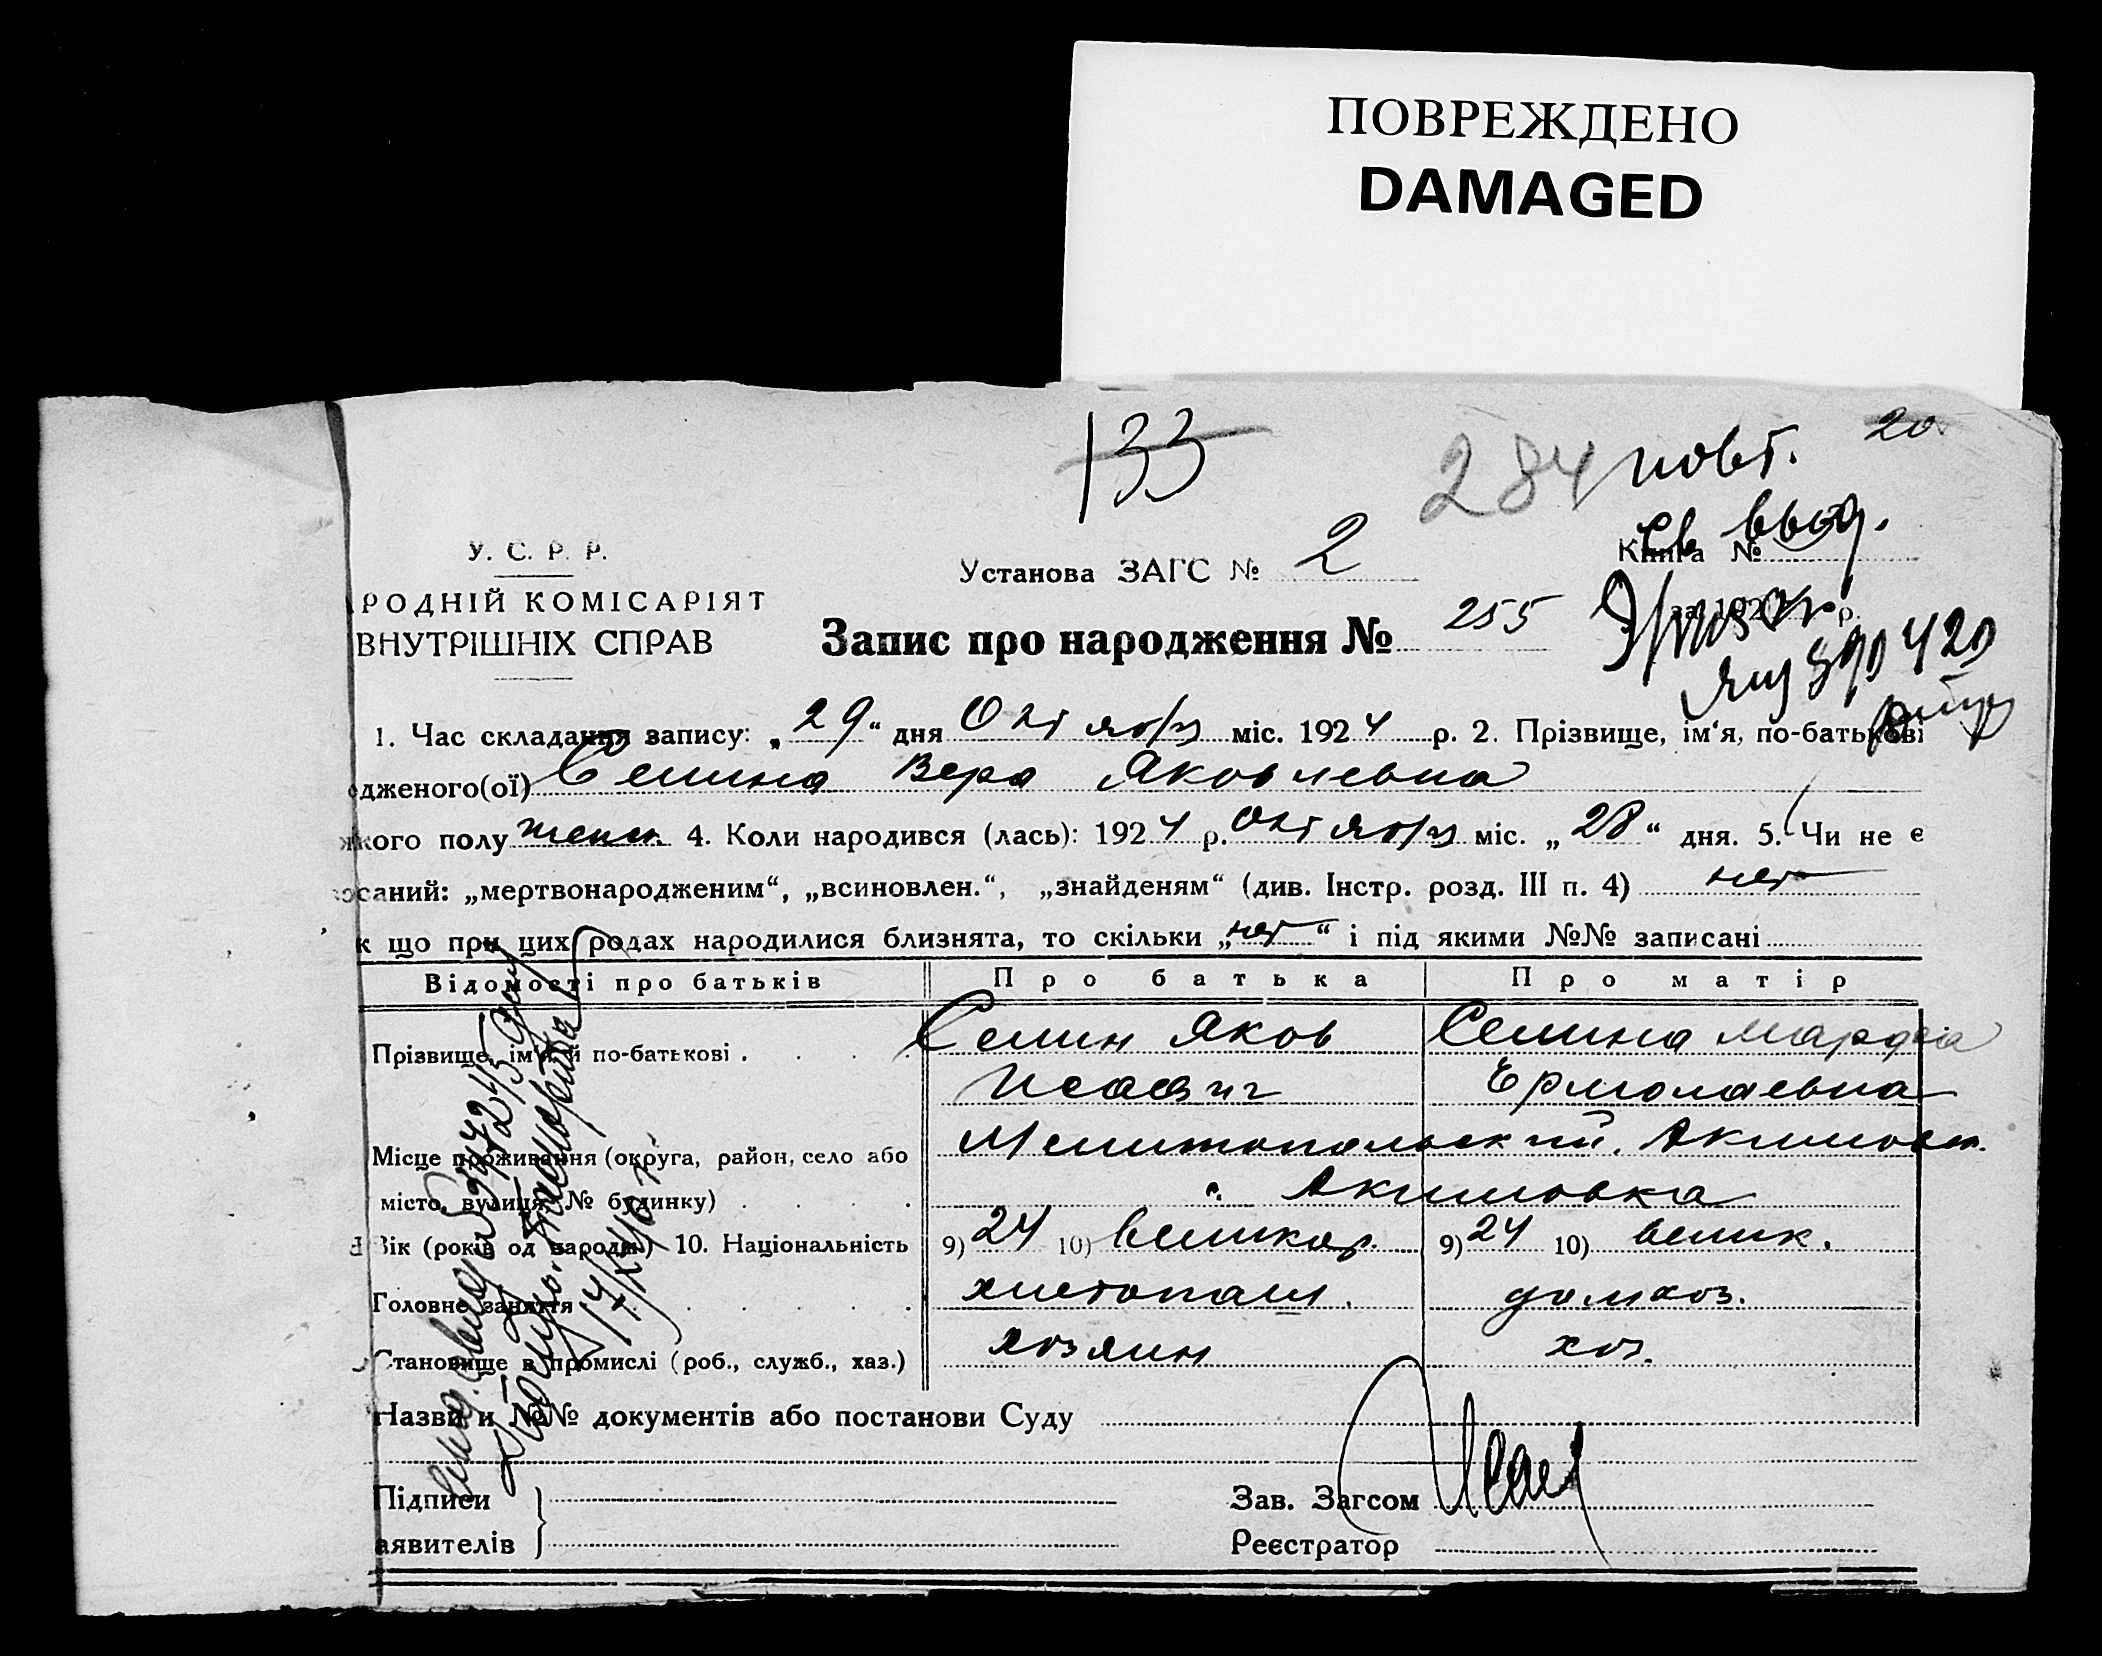 ПОВРЕЖДЕНО
DAMAGED
133
284 повт. 20
св выд.
У. С. Р. Р.
Установа ЗАГС № 2 Книга №
РОДНІЙ КОМІСАРІЯТ
за 192 р.
ВНУТРІШНІХ СПРАВ
Запис про народження № 255
1. Час складання запису: „29“ дня Октября міс. 1924 р. 2. Прізвище, ім'я, по-батькові
одженого(ої) Семина Вера Яковлевна
якого полу женск. 4. Коли народився (лась): 1924 р. Октября міс. „28“ дня. 5. Чи не є
саний: „мертвонародженим“, „всиновлен.“, „знайденям“ (див. Інстр. розд. III п. 4) нет
к що при цих родах народилися близнята, то скільки „нет“ і під якими №№ записані
Відомості про батьків Про батька Про матір
Прізвище, ім'я й по-батькові . Семин Яков Семина Марфа
Исаевич Ермолаевна
Місце проживання (округа, район, село або Мелитопольский. Акимовск.
місто, вулиця, № будинку) с. Акимовка
Вік (років од народж.) 10. Національність 9) 24 10) великор. 9) 24 10) велик.
Головне заняття хлебопаш. домхоз.
Становище в промислі (роб., служб., хаз.) хозяин хоз.
Назви и №№ документів або постанови Суду
Підписи
аявителів
Зав. Загсом
Реєстратор